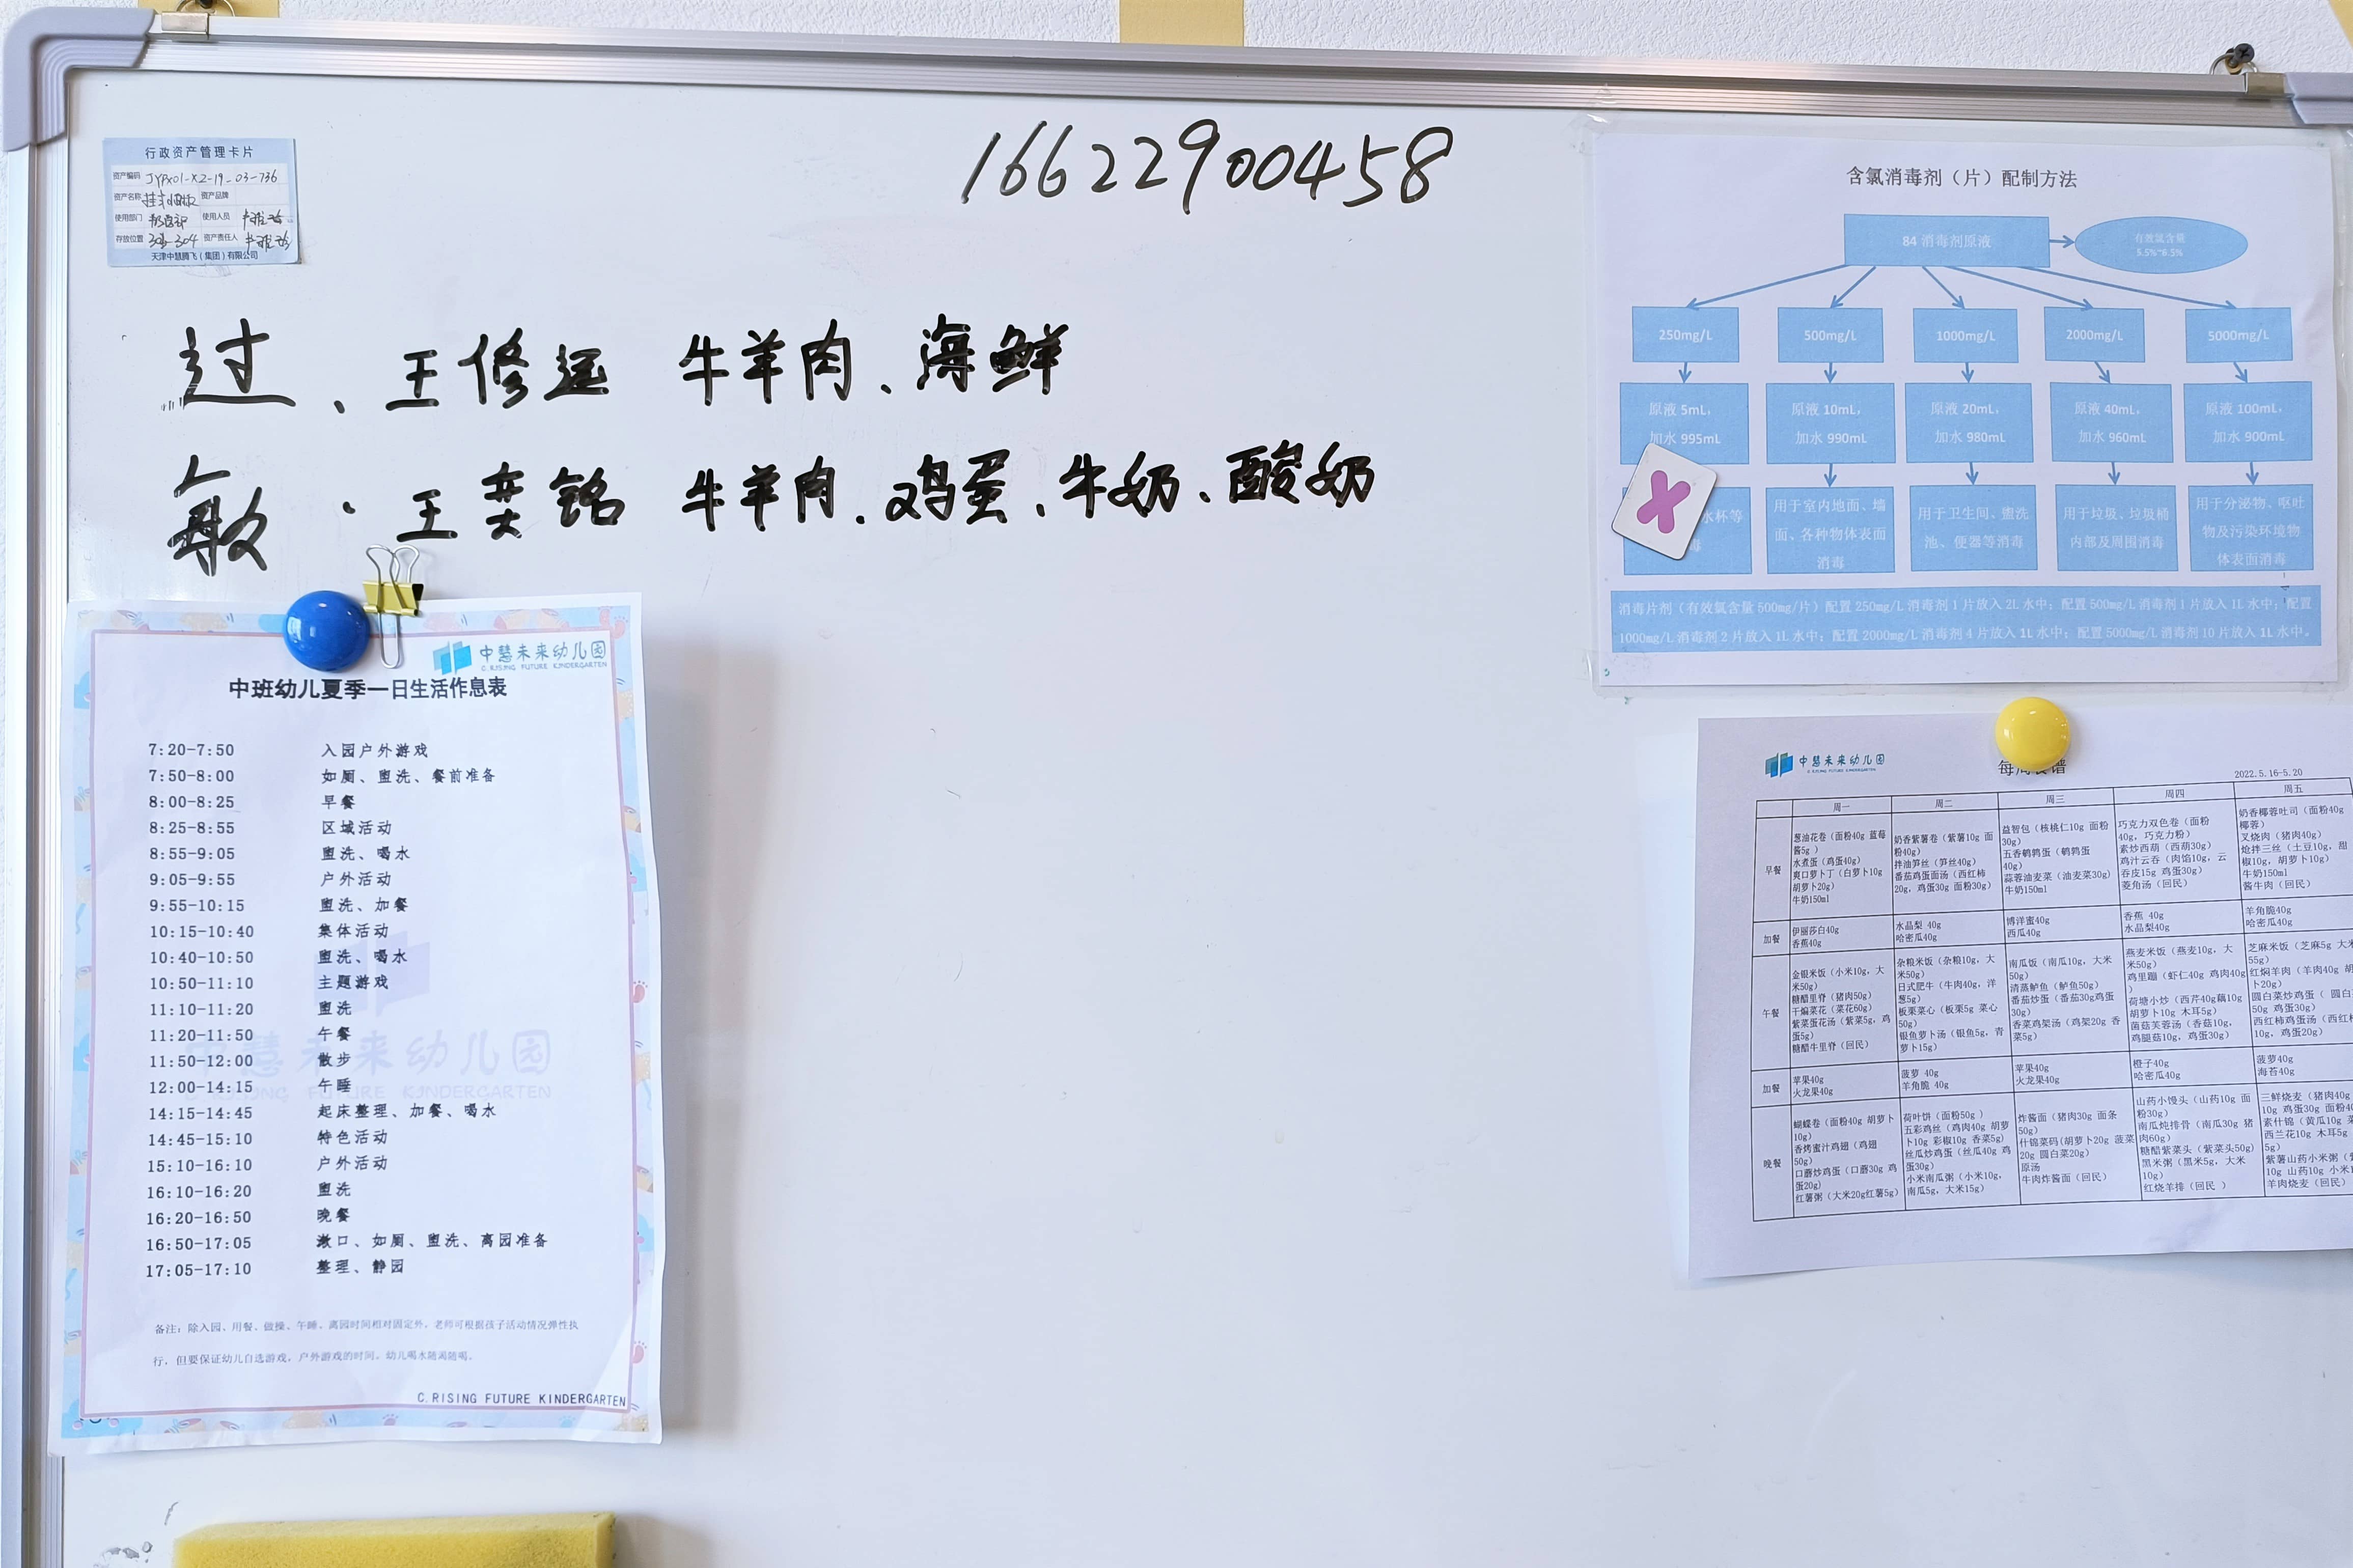 行政资产管理卡片
资产编码 JYPX01-XZ-19-03-736
资产名称 资产品牌
使用部门 使用人员
存放位置 资产责任人
天津中慧腾飞(集团)有限公司
16622900458
过、王修运 牛羊肉、海鲜
敏、王奕铭 牛羊肉、鸡蛋、牛奶、酸奶
中慧未来幼儿园
C.RISING FUTURE KINDERGARTEN
中班幼儿夏季一日生活作息表
7:20-7:50 入园户外游戏
7:50-8:00 如厕、盥洗、餐前准备
8:00-8:25 早餐
8:25-8:55 区域活动
8:55-9:05 盥洗、喝水
9:05-9:55 户外活动
9:55-10:15 盥洗、加餐
10:15-10:40 集体活动
10:40-10:50 盥洗、喝水
10:50-11:10 主题游戏
11:10-11:20 盥洗
11:20-11:50 午餐
11:50-12:00 散步
12:00-14:15 午睡
14:15-14:45 起床整理、加餐、喝水
14:45-15:10 特色活动
15:10-16:10 户外活动
16:10-16:20 盥洗
16:20-16:50 晚餐
16:50-17:05 漱口、如厕、盥洗、离园准备
17:05-17:10 整理、静园
中慧未来幼儿园
C.RISING FUTURE KINDERGARTEN
备注:除入园、用餐、做操、午睡、离园时间相对固定外,老师可根据孩子活动情况弹性执
行,但要保证幼儿自选游戏,户外游戏的时间。幼儿喝水随渴随喝。
C.RISING FUTURE KINDERGARTEN
含氯消毒剂(片)配制方法
84 消毒剂原液
有效氯含量
5.5%~6.5%
250mg/L 500mg/L 1000mg/L 2000mg/L 5000mg/L
原液 5mL, 原液 10mL, 原液 20mL, 原液 40mL, 原液 100mL,
加水 995mL 加水 990mL 加水 980mL 加水 960mL 加水 900mL
X
水杯等
毒
用于室内地面、墙
面、各种物体表面
消毒
用于卫生间、盥洗
池、便器等消毒
用于垃圾、垃圾桶
内部及周围消毒
用于分泌物、呕吐
物及污染环境物
体表面消毒
消毒片剂(有效氯含量 500mg/片)配置 250mg/L 消毒剂 1 片放入 2L 水中;配置 500mg/L 消毒剂 1 片放入 1L 水中;配置
1000mg/L 消毒剂 2 片放入 1L 水中;配置 2000mg/L 消毒剂 4 片放入 1L 水中;配置 5000mg/L 消毒剂 10 片放入 1L 水中。
中慧未来幼儿园
C.RISING FUTURE KINDERGARTEN
每周食谱
2022.5.16-5.20
周一 周二 周三 周四 周五
早餐
葱油花卷(面粉40g 蓝莓
酱5g )
水煮蛋(鸡蛋40g)
爽口萝卜丁(白萝卜10g
胡萝卜20g)
牛奶150ml
奶香紫薯卷(紫薯10g 面
粉40g)
拌油笋丝(笋丝40g)
番茄鸡蛋面汤(西红柿
20g, 鸡蛋30g 面粉30g)
益智包(核桃仁10g 面粉
30g)
五香鹌鹑蛋(鹌鹑蛋
40g)
蒜蓉油麦菜(油麦菜30g)
牛奶150ml
巧克力双色卷(面粉
40g, 巧克力粉)
素炒西葫(西葫30g)
鸡汁云吞(肉馅10g, 云
吞皮15g 鸡蛋30g)
菱角汤(回民)
奶香椰蓉吐司(面粉40g
椰蓉)
叉烧肉(猪肉40g)
炝拌三丝(土豆10g, 甜
椒10g, 胡萝卜10g)
牛奶150ml
酱牛肉(回民)
加餐
伊丽莎白40g
香蕉40g
水晶梨 40g
哈密瓜40g
博洋蜜40g
西瓜40g
香蕉 40g
水晶梨40g
羊角脆40g
哈密瓜40g
午餐
金银米饭(小米10g, 大
米50g)
糖醋里脊(猪肉50g)
干煸菜花(菜花60g)
紫菜蛋花汤(紫菜5g, 鸡
蛋5g)
糖醋牛里脊(回民)
杂粮米饭(杂粮10g, 大
米50g)
日式肥牛(牛肉40g, 洋
葱5g)
板栗菜心(板栗5g 菜心
50g)
银鱼萝卜汤(银鱼5g, 青
萝卜15g)
南瓜饭(南瓜10g, 大米
50g)
清蒸鲈鱼(鲈鱼50g)
番茄炒蛋(番茄30g鸡蛋
30g)
香菜鸡架汤(鸡架20g 香
菜5g)
燕麦米饭(燕麦10g, 大
米50g)
鸡里蹦(虾仁40g 鸡肉40g
)
荷塘小炒(西芹40g藕10g
胡萝卜10g 木耳5g)
菌菇芙蓉汤(香菇10g,
鸡腿菇10g, 鸡蛋30g)
芝麻米饭(芝麻5g 大米
55g)
红焖羊肉(羊肉40g 胡
卜20g)
圆白菜炒鸡蛋( 圆白
50g 鸡蛋30g)
西红柿鸡蛋汤(西红柿
10g, 鸡蛋20g)
加餐
苹果40g
火龙果40g
菠萝 40g
羊角脆 40g
苹果40g
火龙果40g
橙子40g
哈密瓜40g
菠萝40g
海苔40g
晚餐
蝴蝶卷(面粉40g 胡萝卜
10g)
香烤蜜汁鸡翅(鸡翅
50g)
口蘑炒鸡蛋(口蘑30g 鸡
蛋20g)
红薯粥(大米20g红薯5g)
荷叶饼(面粉50g )
五彩鸡丝(鸡肉40g 胡萝
卜10g 彩椒10g 香菜5g)
丝瓜炒鸡蛋(丝瓜40g 鸡
蛋30g)
小米南瓜粥(小米10g,
南瓜5g, 大米15g)
炸酱面(猪肉30g 面条
50g)
什锦菜码(胡萝卜20g 菠菜
20g 圆白菜20g)
原汤
牛肉炸酱面(回民)
山药小馒头(山药10g 面
粉30g)
南瓜炖排骨(南瓜30g 猪
肉60g)
糖醋紫菜头(紫菜头50g)
黑米粥(黑米5g, 大米
10g)
红烧羊排(回民 )
三鲜烧麦(猪肉40g
10g 鸡蛋30g 面粉40
素什锦(黄瓜10g
西兰花10g 木耳5g
5g)
紫薯山药小米粥(
10g 山药10g 小米
羊肉烧麦(回民)